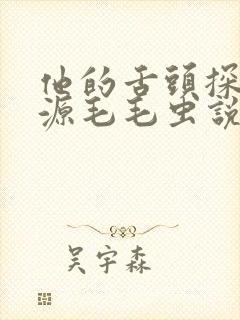 他的舌頭探
源毛毛虫說
吴宇森